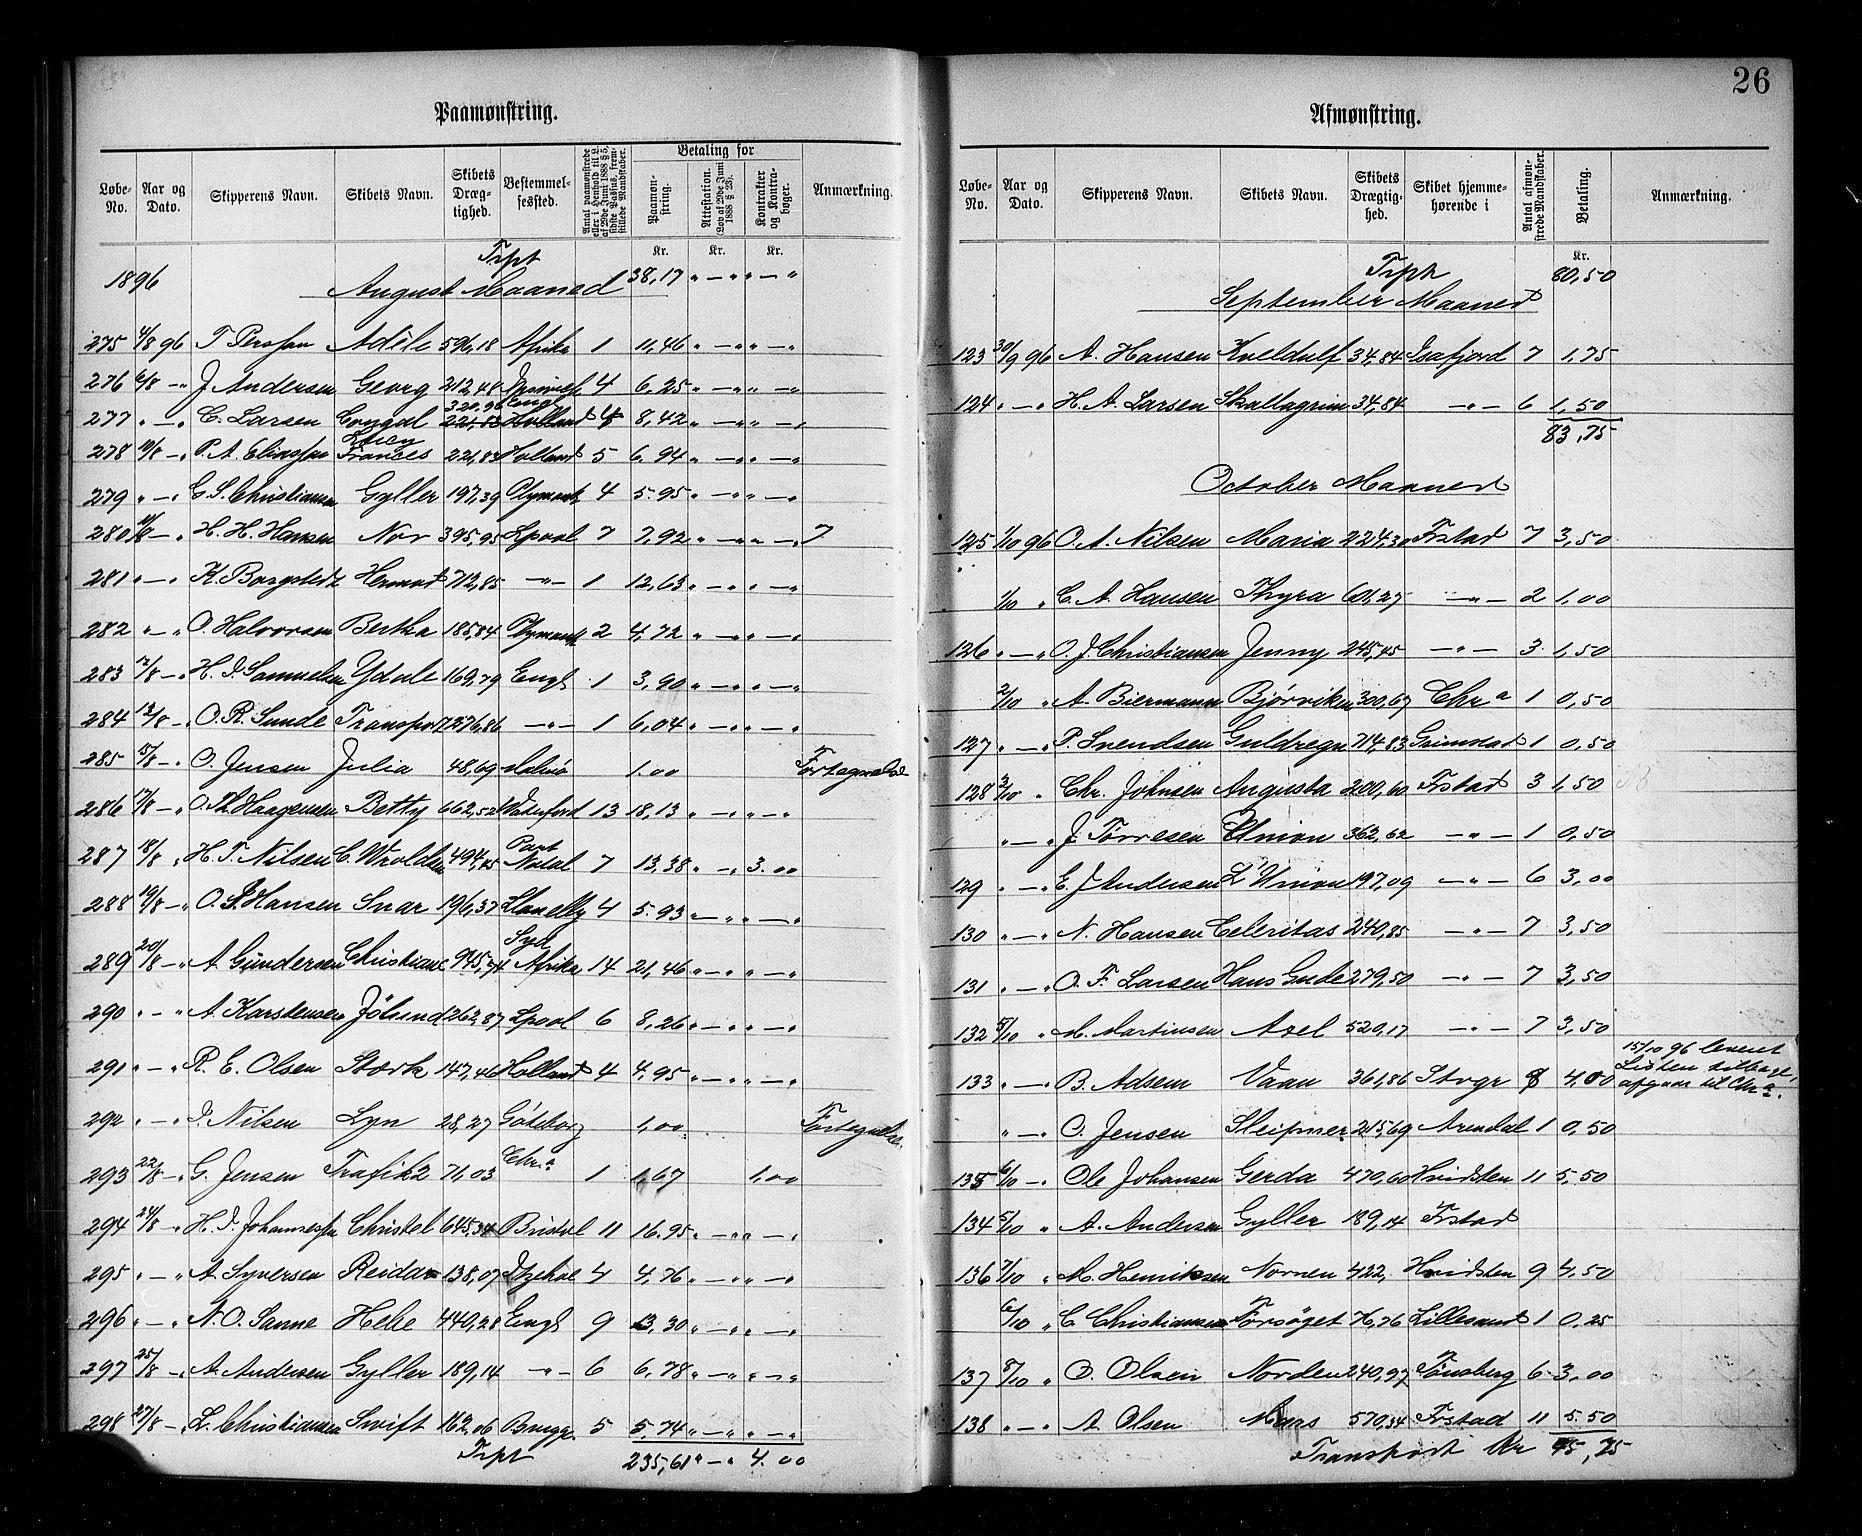 26
Paamønstring.
Løbe-No. Aar og Dato. Skipperens Navn. Skibets Navn. Skibets Drægtighed. Bestemmelsessted. Antal paamønstrede eller i Henhold til L. af 29de Juni 1888 § 5, sidste Passus, fremstillede Mandskaber. Betaling for Paamønstring. Attestation. (Lov af 29de Juni 1888 § 23). Kontrakter og Kontrabøger. Anmærkning.
Kr. Kr. Kr.
Trpt 38,17 " — " " — "
1896 August Maaned
275 4/8 96 T Persson Adèle 596,18 Afrika 1 11,46 " — " " — "
276 6/8 — " J Andersen Georg 212,48 4 6.25 " — " " — "
320,96 Engl
277 " — " C. Larsen 221,83 Holland 4 8,42 " — " " — "
278 10/8 — " P. A. Eliassen Frances 221,83 Holland 5 6.94 " — " " — "
279 " — " C. S. Christiansen Gyller 197,39 Plymouth 4 5.95 " — " " — "
280 11/8 — " H. H. Hansen Nor 395,95 Lpool 7 7,92 " — " " — " 7
281 " — " K. Borgstedt Hermod 712,85 — " — 1 12,63 " — " " — "
282 " — " O. Halvorsen Bertha 185,84 Plymouth 2 4,72 " — " " — "
283 12/8 — " H. J. Samuelsen Ydale 169,79 Engl 1 3,90 " — " " — "
284 13/8 — " O. R. Sunde Transport 276,86 — " — 1 6,04 " — " " — "
285 15/8 — " O. Jensen Julia 48,69 Malmö 1.00 Fortegnelse
286 17/8 — " O. Th Haagensen Betty 662,52 Waterford 13 18,13 " — " " — "
287 18/8 " H. T. Nilsen C. Wroldsen 494,45 Port Natal 7 13,38 " — " 3.00
288 19/8 — " O. S. Hansen Snar 196,37 Llanelly 4 5.93 " — " " — "
289 20/8 — " A Gundersen Christiane 945,74 Syd Afrika 14 21,46 " — " " — "
290 " — " A Karstensen Jölund 262,87 Lpool 6 8,26 " — " " — "
291 " — " R. E. Olsen Stærk 147,46 Holland 4 4,95 " — " " — "
292 " — " J. Nilsen Lyn 28,27 Göteborg 1,00 Fortegnelse
293 22/8 — " G. Jensen Trafik 2 71,03 Chr.a 1 1,67 1,00
294 24/8 — " H. J. Johannessen Christel 645,34 Bristol 11 16.95 " — " " — "
295 " — " A. Syversen Reidar 138,07 Itzehoe 4 4,76 " — " " — "
296 " — " N. O. Sanne Hebe 440,28 Engl 9 3,30 " — " " — "
297 25/8 — " A. Andersen Gyller 189,14 — " — 6 6,78 " — " " — "
298 27/8 — " L. Christiansen Swift 162,06 Brugge 5 5,74 " — " " — "
Trpt 235,61 " — " 4.00
Afmønstring.
Løbe-No. Aar og Dato. Skipperens Navn. Skibets Navn. Skibets Drægtighed. Skibet hjemmehørende i Antal afmønstrede Mandskaber. Betaling. Anmærkning.
Kr.
Trpt 80,50
September Maaned
123 30/9 96 A. Hansen Kveldulf 34,84 Isafjord 7 1,75
124 " — " H. A. Larsen Skallagrim 34,84 — " — 6 1,50
83,75
October Maaned
125 1/10 96 O. A. Nilsen Maria 224,30 Frstad 7 3,50
1/10 " C. A. Hansen Thyra 601,27 — " — 2 1,00
126 " — " O. J. Christiansen Jenny 245,45 — " — 3 1,50
2/10 " A. Biermann Bjørviken 300,67 Chr a 1 0,50
127 " — " P. Svendsen Guldregn 714,83 Grimstad 1 0,50
128 3/10 " Chr. Johnsen Augusta 200,60 Frstad 3 1,50
" — " J. Tørresen Union 362,62 — " — 1 0,50
129 " — " E. J Andersen L'Union 197,09 — " — 6 3,00
130 " — " N. Hansen Celeritas 240,85 — " — 7 3,50
131 " — " O. F. Larsen Hans Gude 279,50 — " — 7 3,50
132 5/10 " M. Martinsen Axel 520,17 — " — 7 3,50
15/10 96 leveret
133 " — " B. Adsem Vaan 361,86 Stvgr 8 4.00 Listen tilbage, afgaar til Chr a.
" — " O. Jensen Sleipner 215,69 Arendal 1 0,50
135 6/10 — " Ole Johansen Gerda 470,60 Hvidsten 11 5,50
134 5/10 " A. Andersen Gyller 189,14 Frstad
136 7/10 " M. Henriksen Nornen 422, Hvidsten 9 4,50
6/10 " C. Christiansen Forsøget 76,76 Lillesand 1 0,25
137 8/10 " O. Olsen Norden 240,97 Tönsberg 6 3,00
138 " — " A. Olsen Mars 570,34 Frstad 11 5.50
Transport Kr 45,75